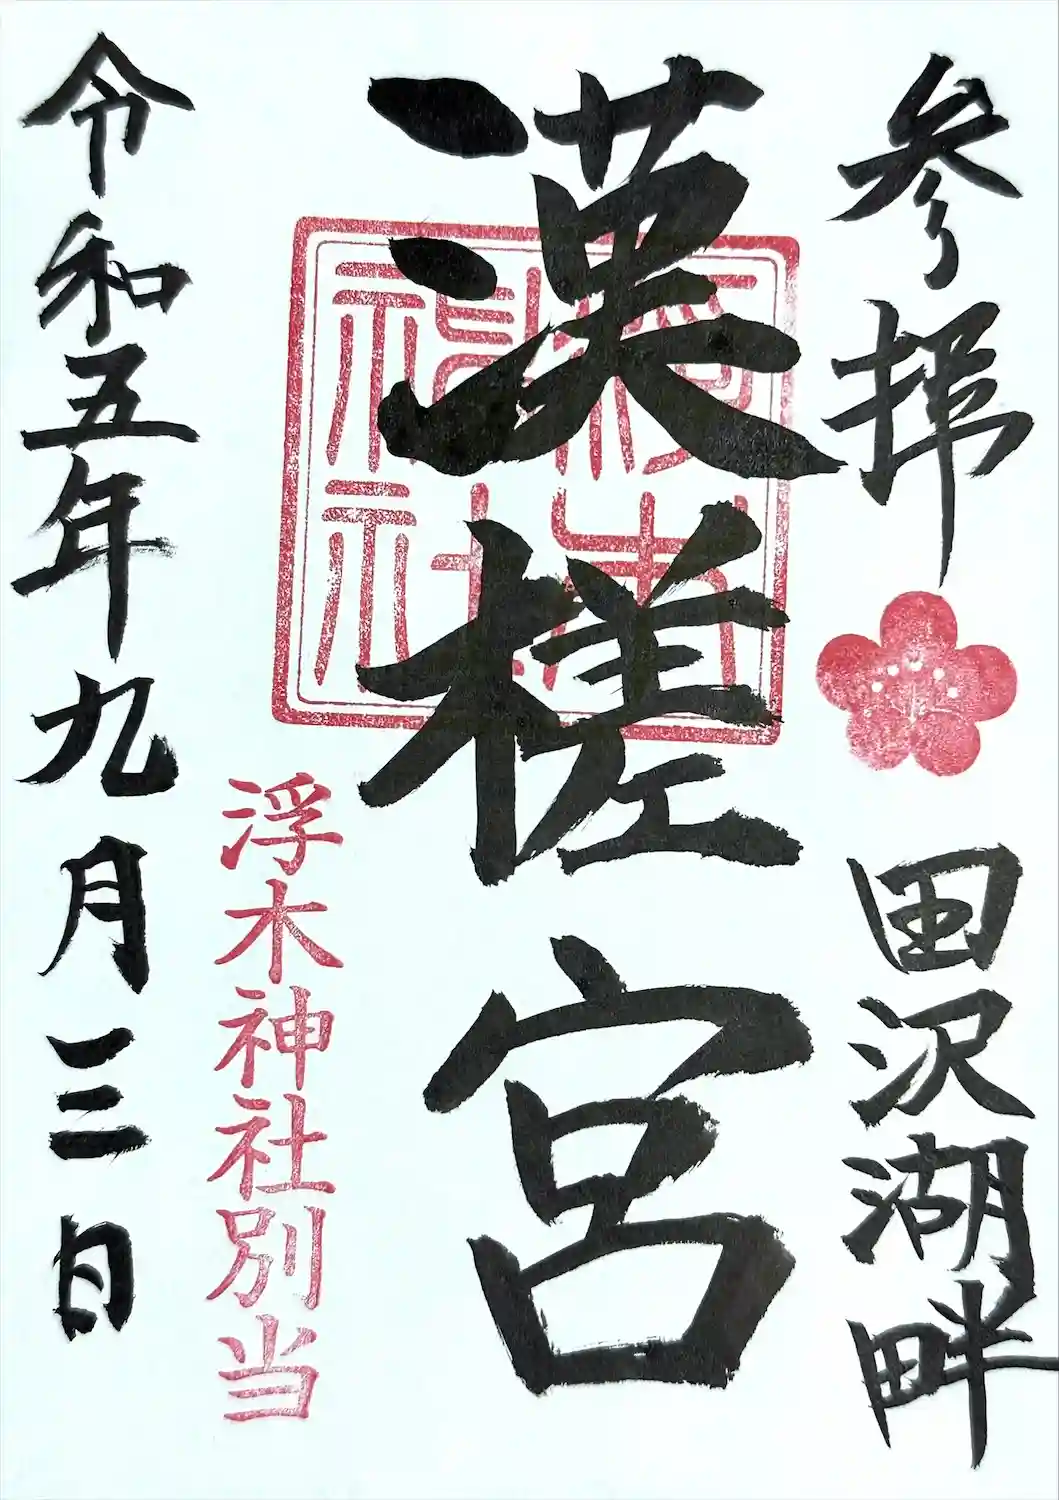 参拝
田沢湖畔
漢槎宮
浮木神社
浮木神社別当
令和五年九月三日